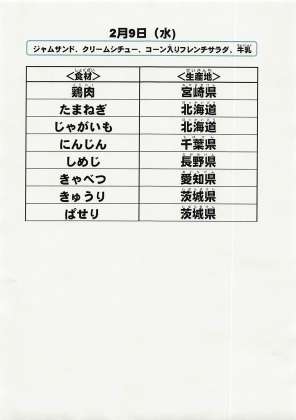 2月9日（水）
ジャムサンド、クリームシチュー、コーン入りフレンチサラダ、牛乳
＜食材＞ ＜生産地＞
鶏肉 宮崎県
たまねぎ 北海道
じゃがいも 北海道
にんじん 千葉県
しめじ 長野県
きゃべつ 愛知県
きゅうり 茨城県
ぱせり 茨城県